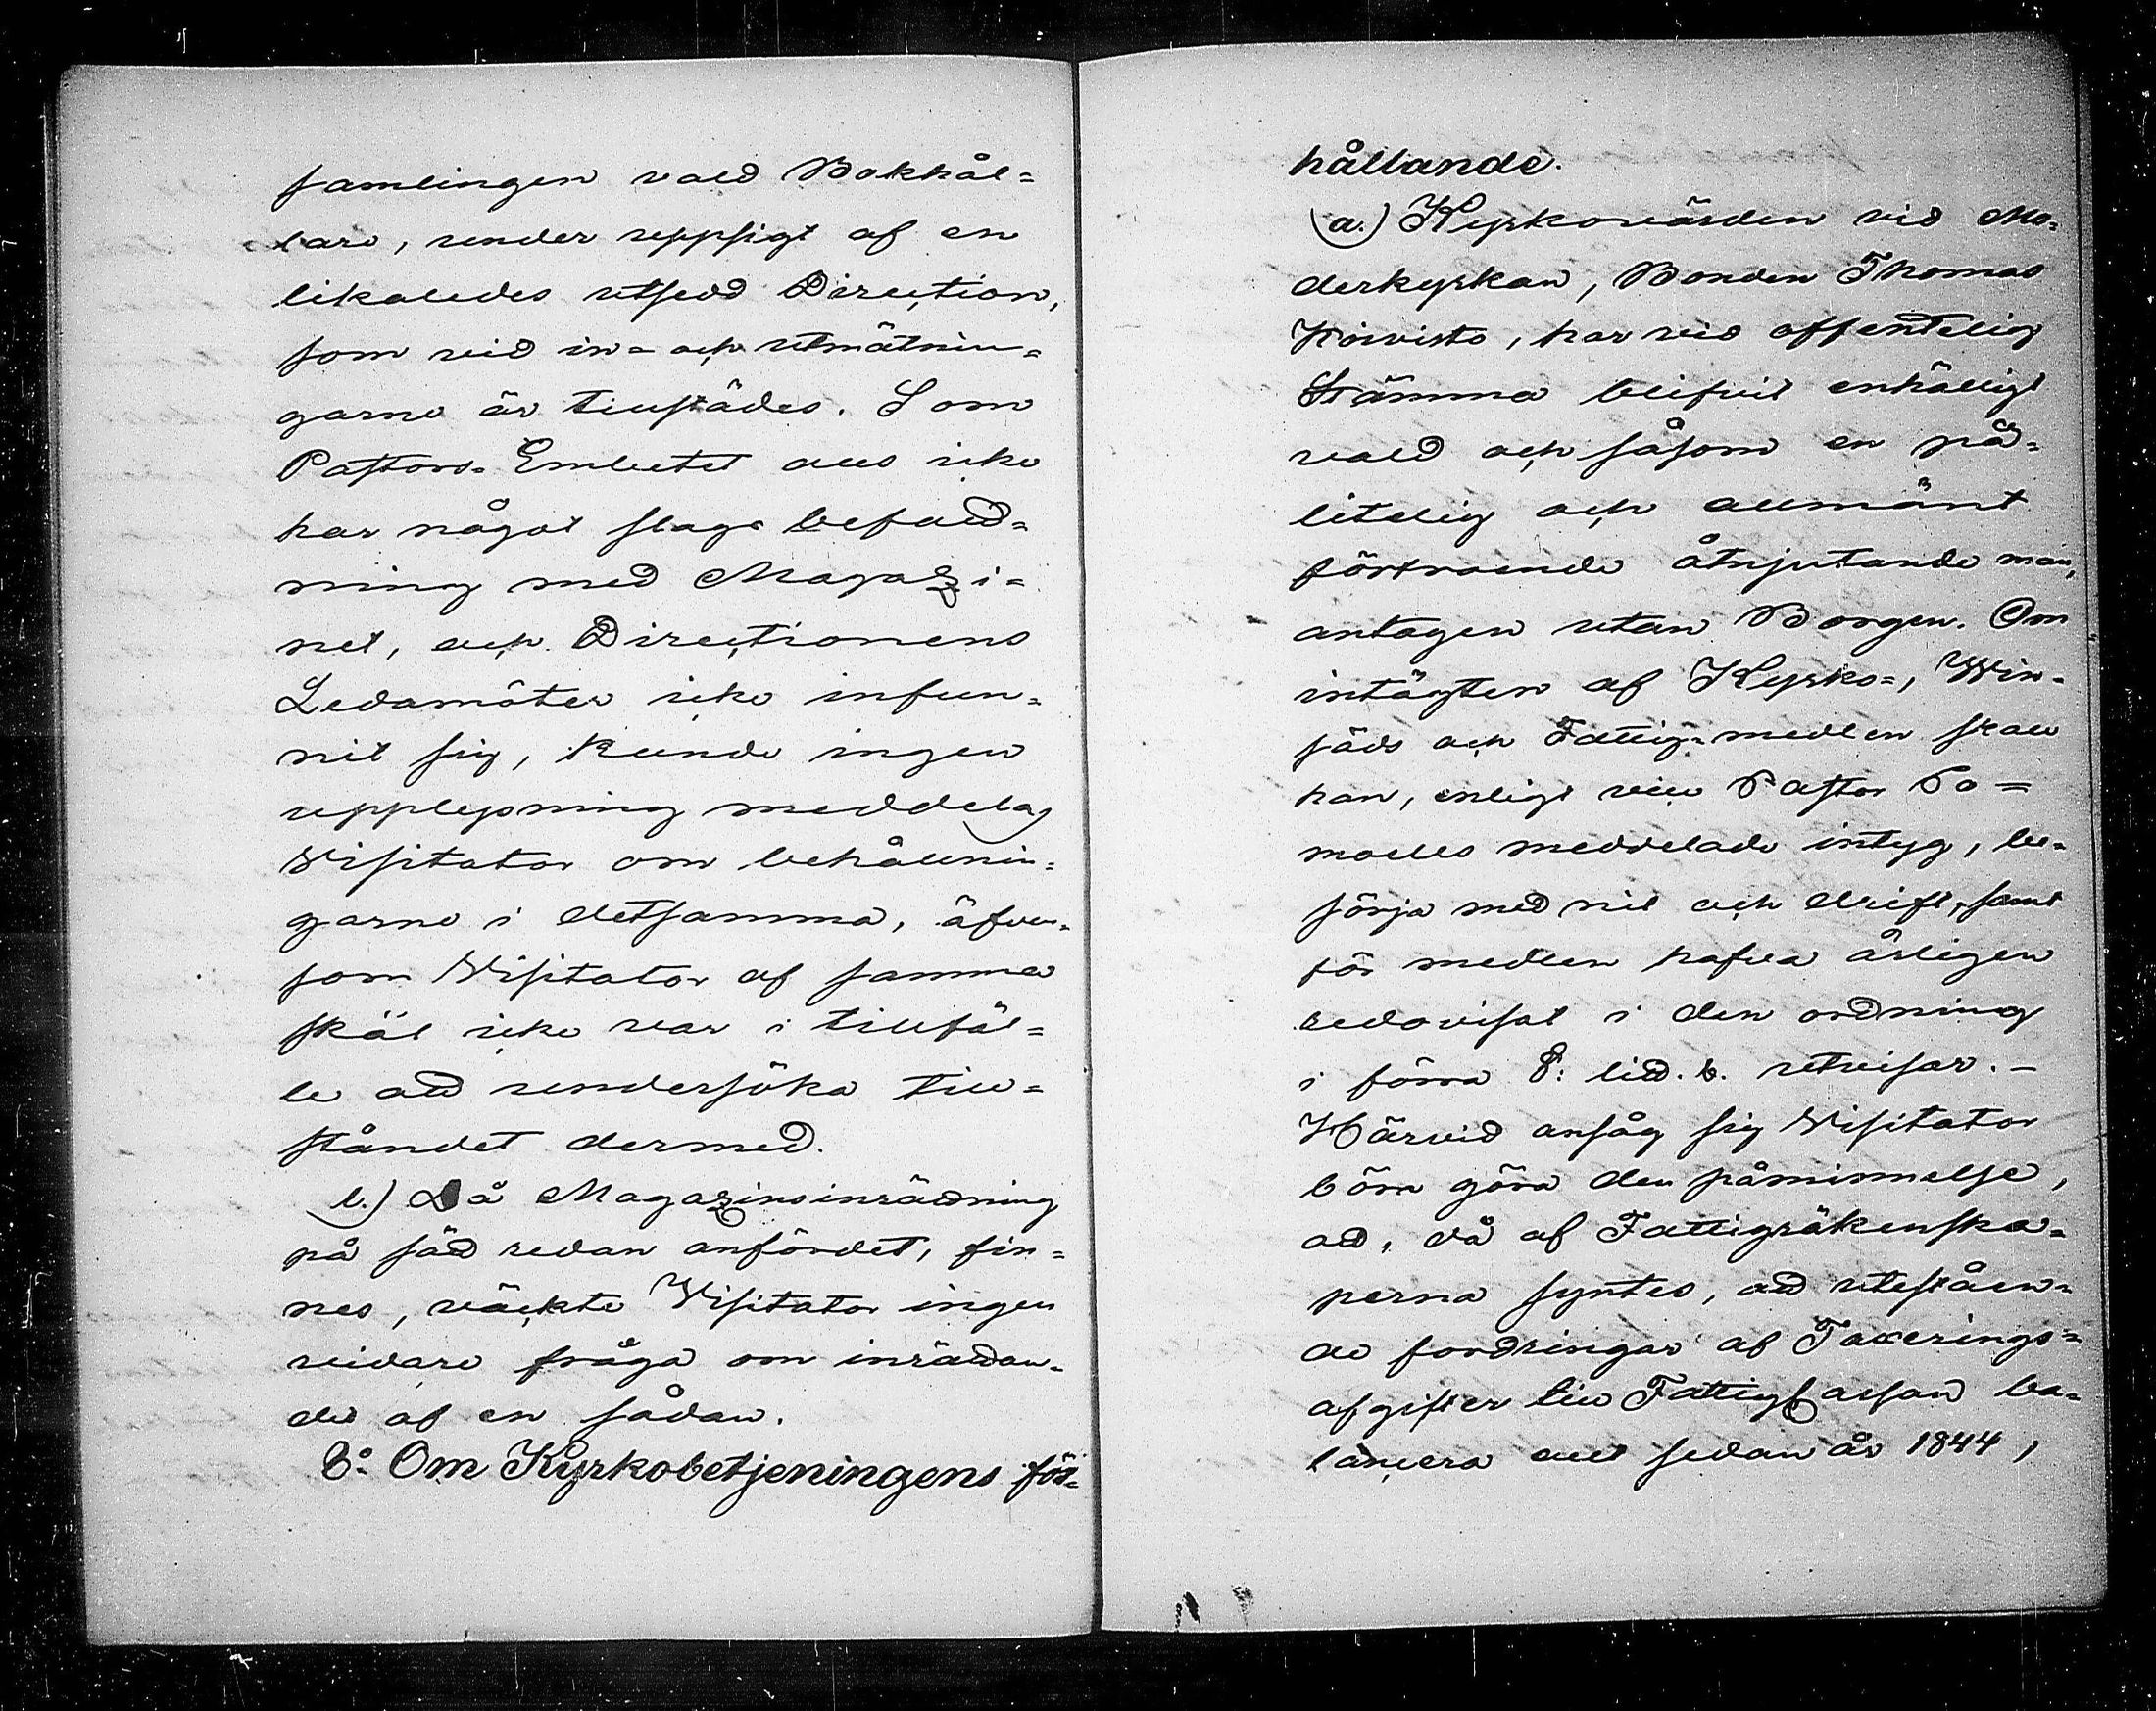 samlingen vald Bokhål=
lare, under uppsigt af en
likaledes utsedd Direction,
som vid in= och utmätnin=
garne är tillstädes. Som
Pastors-Embetet alls icke
har något slags befatt=
ning med Magazi=
net, och Directionens
Ledamöter icke infun=
nit sig, kunde ingen
upplysning meddelas
Visitator om behållnin=
garne i detsamma, äfven=
som Visitator af samma
skäl icke var i tillfäl=
le att undersöka till=
ståndet dermed.
b.) Då Magazinsinrättning
på säd redan anfördt, fin=
nes, väckte Visitator ingen
vidare fråga om inrättan=
det af en sådan.
8: Om Kyrkobetjeningens för=
hållande.
a.) Kyrkovärden vid Mo=
derkyrkan, Bonden Thomas
Koivisto, har vid offentelig
Stämma blifvit enhälligt
vald och såsom en på=
litelig och allmänt
förtroende åtnjutande man,
antagen utan Borgen. Om
intägten af Kyrko=, Win=
säds och Fattig-medlen skall
han, enligt vice Pastor
meddelade intyg, be=
sörja med nit och drift, samt
för medlen hafva årligen
redovisat i den ordning
i förra §: litt. b. utvisar. –
Härvid ansåg sig Visitator
böra göra den påminnelse,
att, då af Fattigräkenska=
perna syntes, att uteståen=
de fordringar af Taxerings=
afgifter till Fattigcassan ba=
lancera allt sedan år 1844,